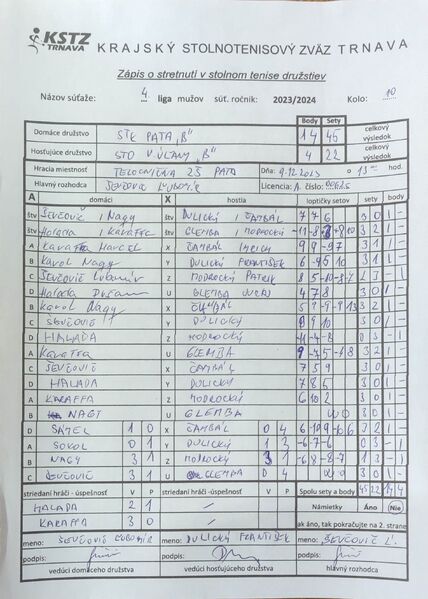 KSTZ TRNAVA KRAJSKÝ STOLNOTENISOVÝ ZVÄZ TRNAVA
Zápis o stretnutí v stolnom tenise družstiev
Názov súťaže: 4 liga mužov súť. ročník: 2023/2024 Kolo: 10
Body Sety
Domáce družstvo STK PATA "B" 14 45 celkový výsledok
Hosťujúce družstvo STO V. ÚĽANY "B" 4 22 celkový výsledok
Hracia miestnosť TELOCVIČŇA ZŠ PATA Dňa: 9.12.2023 o 13 hod.
Hlavný rozhodca ŠEVČOVIČ ĽUBOMÍR Licencia A číslo:
A domáci X hostia loptičky setov sety body
štv ŠEVČOVIČ, Nagy štv DULICKÝ, ČAMBÁL 7 7 6 3 0 1 -
štv Halada, Karaffa štv GLEMBA, MODROCKÝ
A Karaffa Marcel X ČAMBÁL IMRICH 9 9 -9 7 3 1 1 -
B Karol Nagy Y DULICKÝ FRANTIŠEK 3 1 1 -
C ŠEVČOVIČ Ľubomír Z MODROCKÝ PATRIK
D Halada Dušan U GLEMBA JURAJ 4 7 8 3 0 1 -
B Karol Nagy X ČAMBÁL 3 2 1 -
C ŠEVČOVIČ Y DULICKÝ 3 0 1 -
D HALADA Z MODROCKÝ -11 -4 -8 0 3 - 1
A Karaffa U GLEMBA 3 2 1 -
C ŠEVČOVIČ X ČAMBÁL 7 5 9 3 0 1 -
D HALADA Y DULICKÝ 7 8 5 3 0 1 -
A KARAFFA Z MODROCKÝ 6 10 2 3 0 1 -
B NAGY U GLEMBA 3 0 1 -
D 1 0 X ČAMBÁL 0 4 3 2 1 -
A SOKOL 0 1 Y DULICKÝ 1 3 -6 -7 -6 0 3 - 1
B NAGY 3 1 Z MODROCKÝ 3 1 -6 -8 8 -7 1 3 - 1
C ŠEVČOVIČ 3 1 U GLEMBA 0 4 3 0 1 -
striedaní hráči - úspešnosť V P striedaní hráči - úspešnosť V P Spolu sety a body 45 22 14 4
HALADA 2 1 / Námietky Áno Nie
KARAFFA 3 0 / ak áno, tak pokračujte na 2. strane
meno: ŠEVČOVIČ ĽUBOMÍR meno: DULICKÝ FRANTIŠEK meno: ŠEVČOVIČ Ľ.
podpis: podpis: podpis:
vedúci domáceho družstva vedúci hosťujúceho družstva hlavný rozhodca